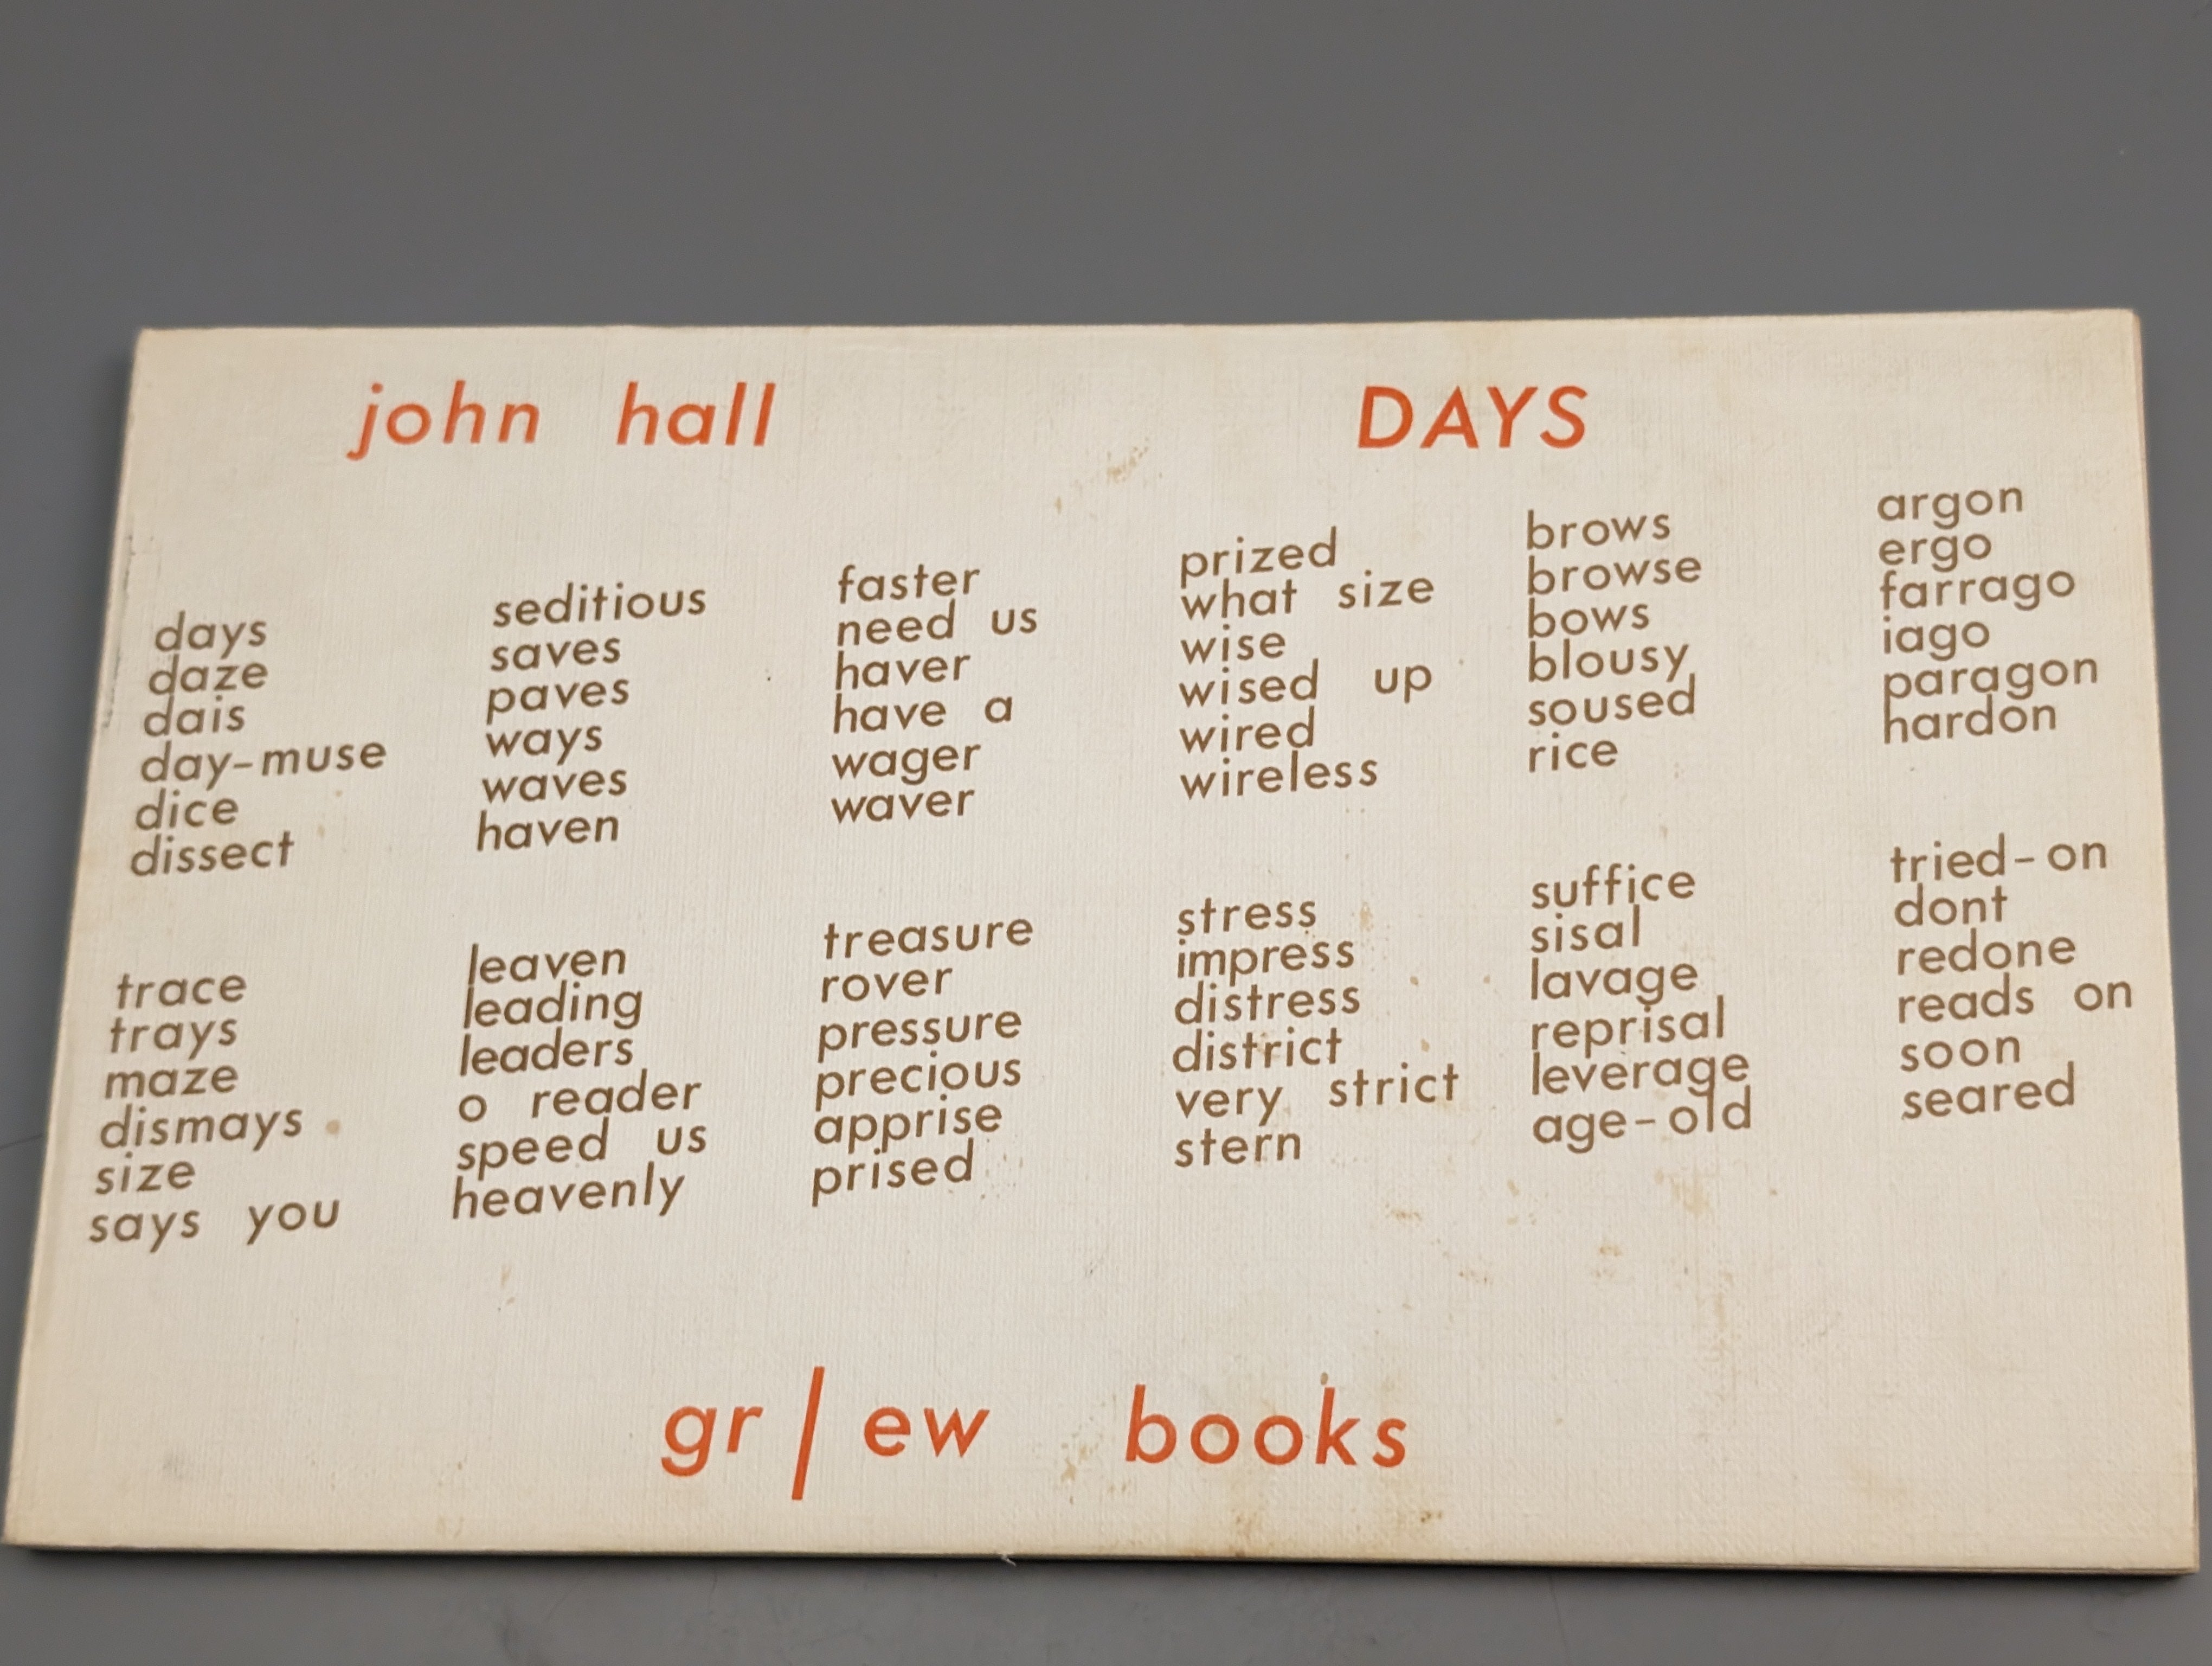 john hall
DAYS
days
daze
dais
day-muse
dice
dissect
trace
trays
maze
dismays
size
says you
seditious
saves
paves
ways
waves
haven
leaven
leading
leaders
o reader
speed us
heavenly
faster
need us
haver
have a
wager
waver
treasure
rover
pressure
precious
apprise
prised
prized
what size
wise
wised up
wired
wireless
stress
impress
distress
district
very strict
stern
brows
browse
bows
blousy
soused
rice
suffice
sisal
lavage
reprisal
leverage
age-old
argon
ergo
farrago
iago
paragon
hardon
tried-on
dont
redone
reads on
soon
seared
gr/ew books